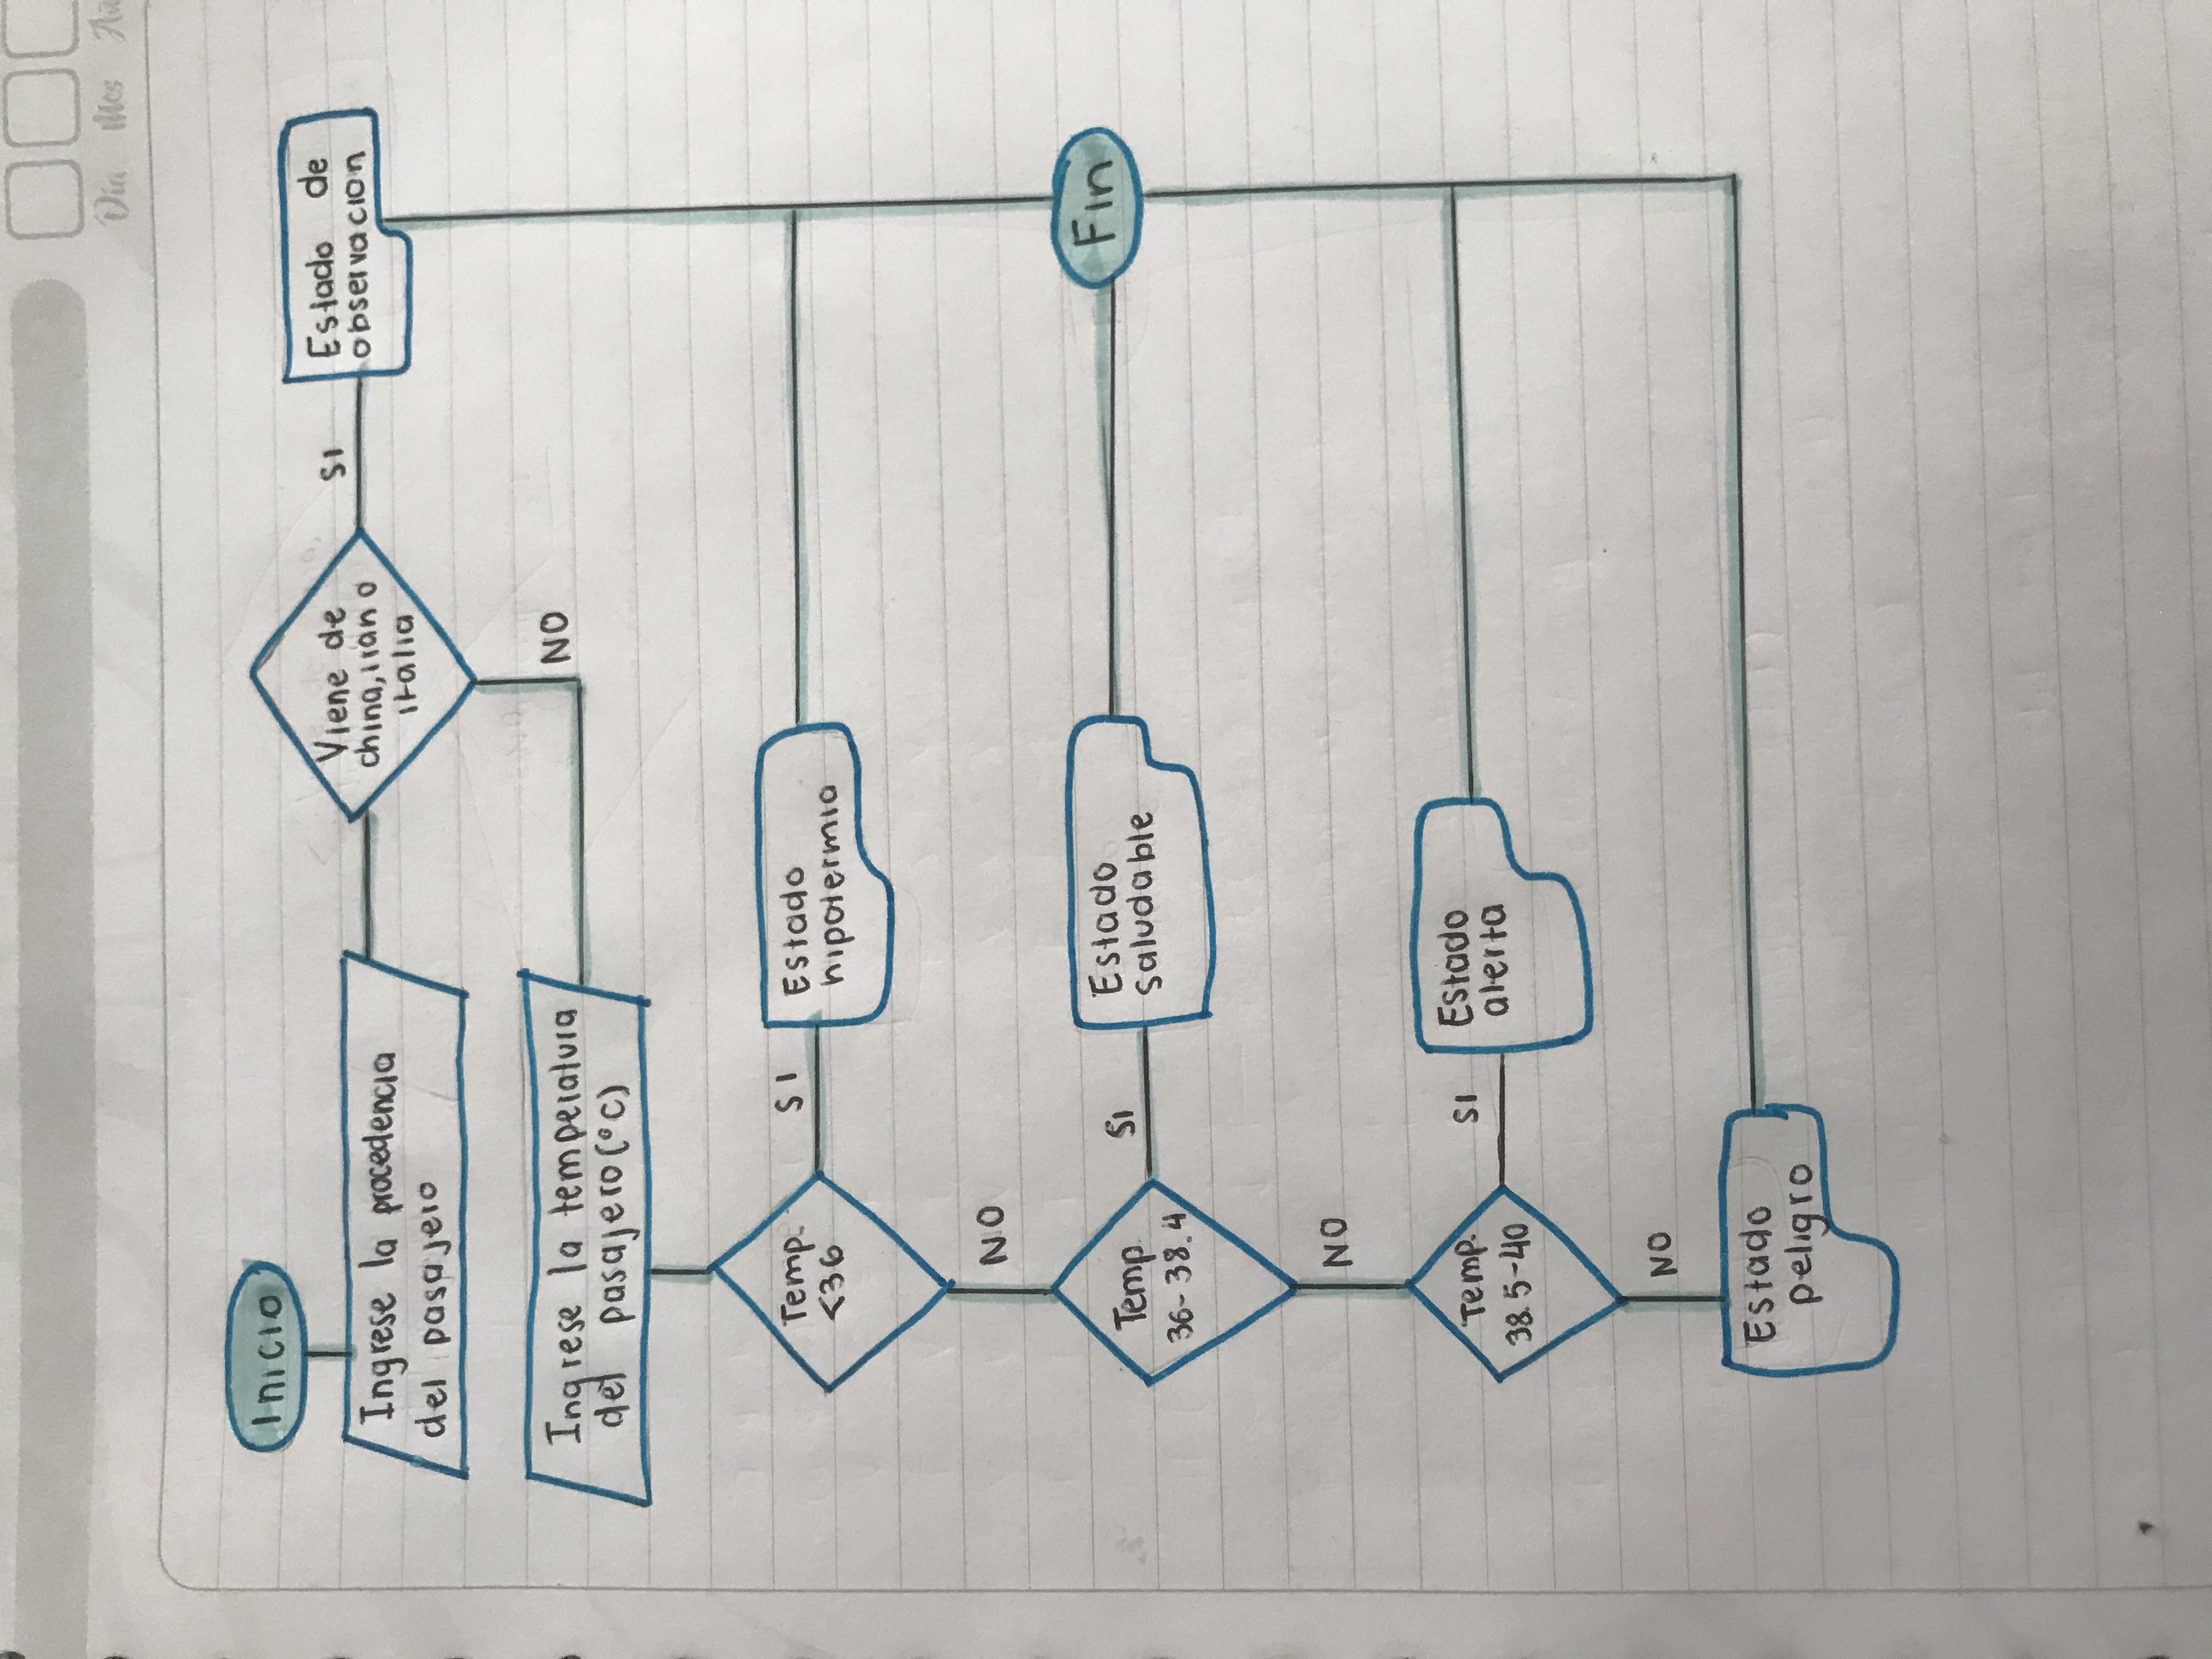 Inicio
Ingrese la procedencia
del pasajero
Viene de
china, irán o
italia
SI
Estado de
observacion
NO
Ingrese la temperatura
del pasajero (°C)
Temp.
<36
SI
Estado
hipotermia
NO
Temp
36-38.4
SI
Estado
saludable
NO
Temp.
38.5-40
SI
Estado
alerta
NO
Estado
peligro
Fin
Día Mes